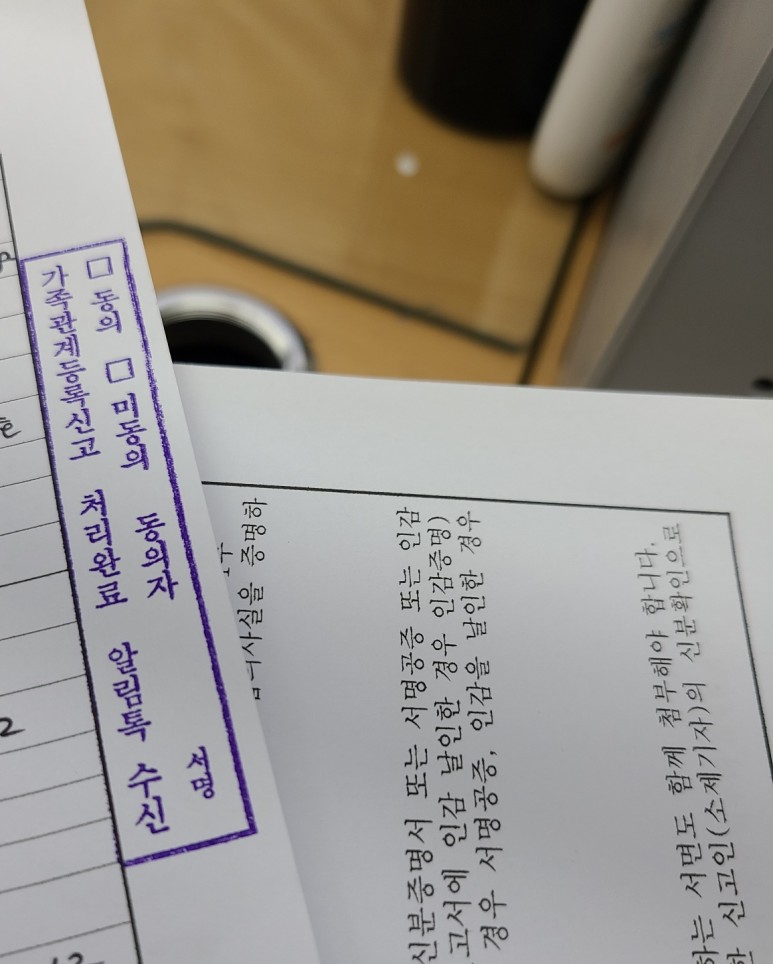 가족관계등록신고 처리완료 알림톡 수신
□ 동의 □ 미동의 동의자 서명
사실을 증명하
신분증명서 또는 서명공증 또는 인감
고서에 인감 날인한 경우 인감증명)
경우 서명공증, 인감을 날인한 경우
하는 서면도 함께 첨부해야 합니다.
한 신고인(소제기자)의 신분확인으로
2
12